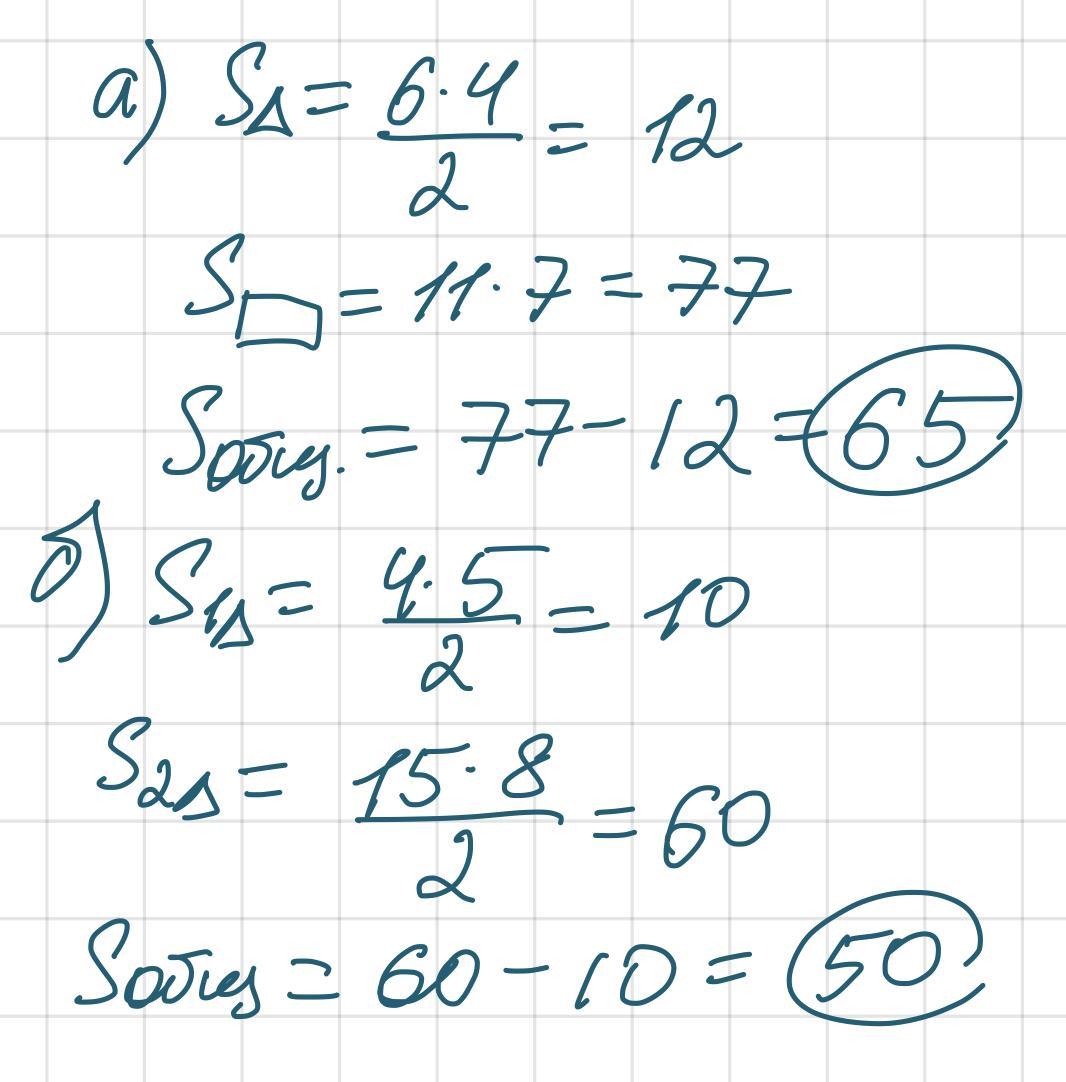 а) S△ = 6·4/2 = 12
S▭ = 11·7 = 77
Sобщ. = 77 - 12 = 65
б) S1△ = 4·5/2 = 10
S2△ = 15·8/2 = 60
Sобщ = 60 - 10 = 50